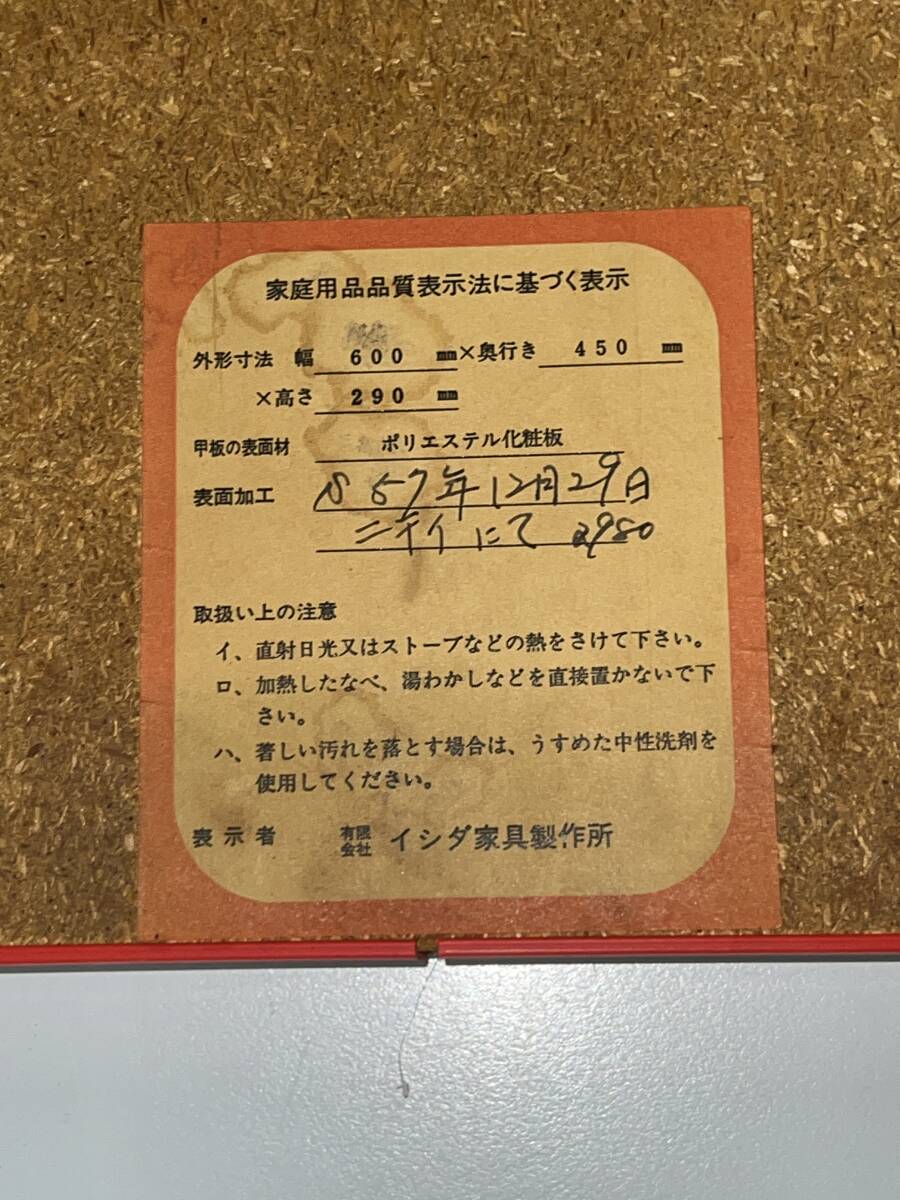 家庭用品品質表示法に基づく表示
外形寸法 幅 600 mm×奥行き 450 mm
×高さ 290 mm
甲板の表面材 ポリエステル化粧板
表面加工 S57年12月29日
ニチイにて 2980
取扱い上の注意
イ、直射日光又はストーブなどの熱をさけて下さい。
ロ、加熱したなべ、湯わかしなどを直接置かないで下
さい。
ハ、著しい汚れを落とす場合は、うすめた中性洗剤を
使用してください。
表示者 有限会社 イシダ家具製作所